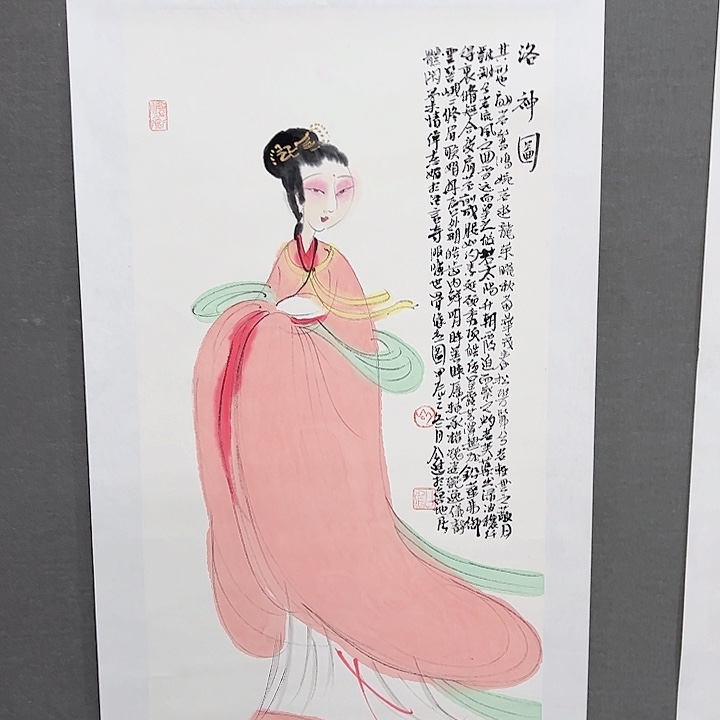 洛神圖
其形也翩若驚鴻婉若遊龍榮曜秋菊華茂春松髣髴兮若輕雲之蔽月
飄颻兮若流風之迴雪遠而望之皎若太陽升朝霞迫而察之灼若芙蕖出淥波穠纖
得衷脩短合度肩若削成腰如約素延頸秀項皓質呈露芳澤無加鉛華弗御
雲髻峨峨修眉聯娟丹唇外朗皓齒內鮮明眸善睞靨輔承權瓌姿艷逸儀靜
體閑柔情綽態媚於語言奇服曠世骨像應圖甲辰之冬月